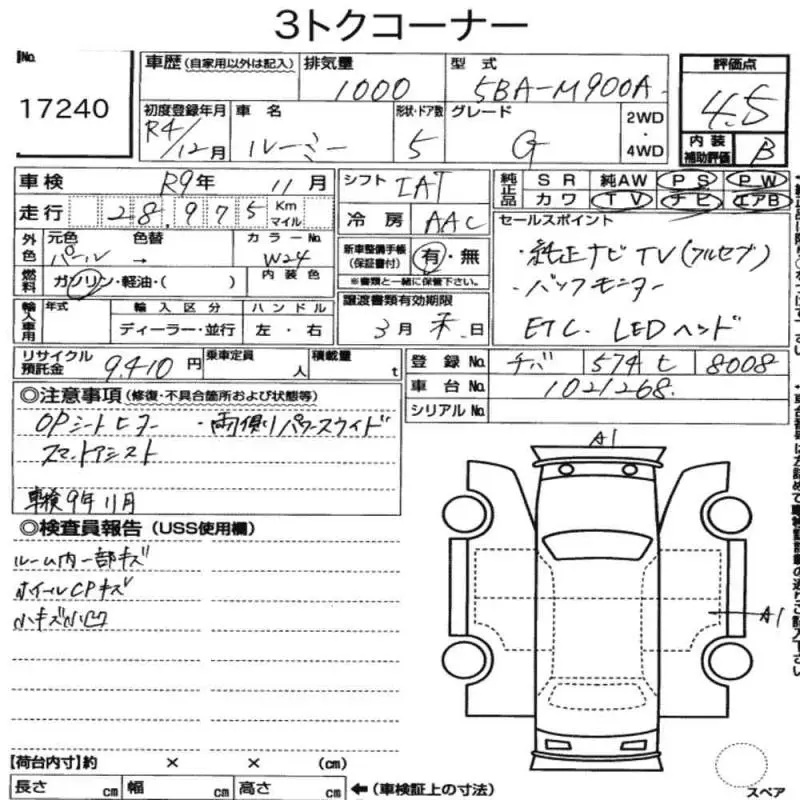 3トクコーナー
No.
17240
車歴 (自家用以外は記入)
排気量
1000
型式
5BA-M900A
評価点
4.5
初度登録年月
R4/12月
車名
ルーミー
形状・ドア数
5
グレード
G
2WD
・
4WD
内装
補助評価
B
車検 R9年 11月
シフト IAT
純正品
SR 純AW PS PW
カワ TV ナビ エアB
走行 28,975 Km マイル
冷房 AAC
セールスポイント
外色 元色 色替 カラーNo.
パール → W24
新車整備手帳
(保証書付)
有・無
※書類と一緒に保管下さい。
・純正ナビTV(フルセブ)
燃料 ガソリン・軽油・( ) 内装色
・バックモニター
譲渡書類有効期限
3月末日
ETC. LEDヘッド
輸入車用 年式 輸入区分 ハンドル
ディーラー・並行 左・右
リサイクル
預託金
9,410円
乗車定員 人
積載量 t
登録No. チバ 574 ヒ 8008
車台No. 1021268.
シリアルNo.
◎注意事項 (修復・不具合箇所および状態等)
OPシートヒーター ・両側パワースライド
スマートアシスト
車検9年11月
◎検査員報告 (USS使用欄)
ルーム内一部キズ
ホイールCPキズ
小キズ小凹
A1
A1
【荷台内寸】約 × × (cm)
長さ cm 幅 cm 高さ cm ←(車検証上の寸法)
スペア